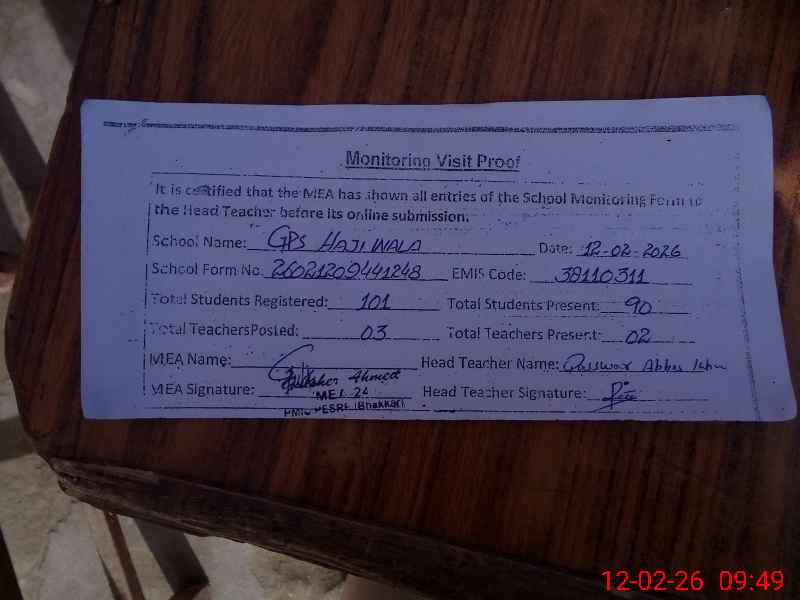 Monitoring Visit Proof
It is certified that the MEA has shown all entries of the School Monitoring Form to
the Head Teacher before its online submission.
School Name: GPS HAJI WALA Date: 12-02-2026
School Form No. 26021209441248 EMIS Code: 38110311
Total Students Registered: 101 Total Students Present: 90
Total TeachersPosted: 03 Total Teachers Present: 02
MEA Name: Head Teacher Name: Abbas
Ahmed
MEA Signature: Head Teacher Signature:
MEA 24
(Bhakkar)
12-02-26 09:49